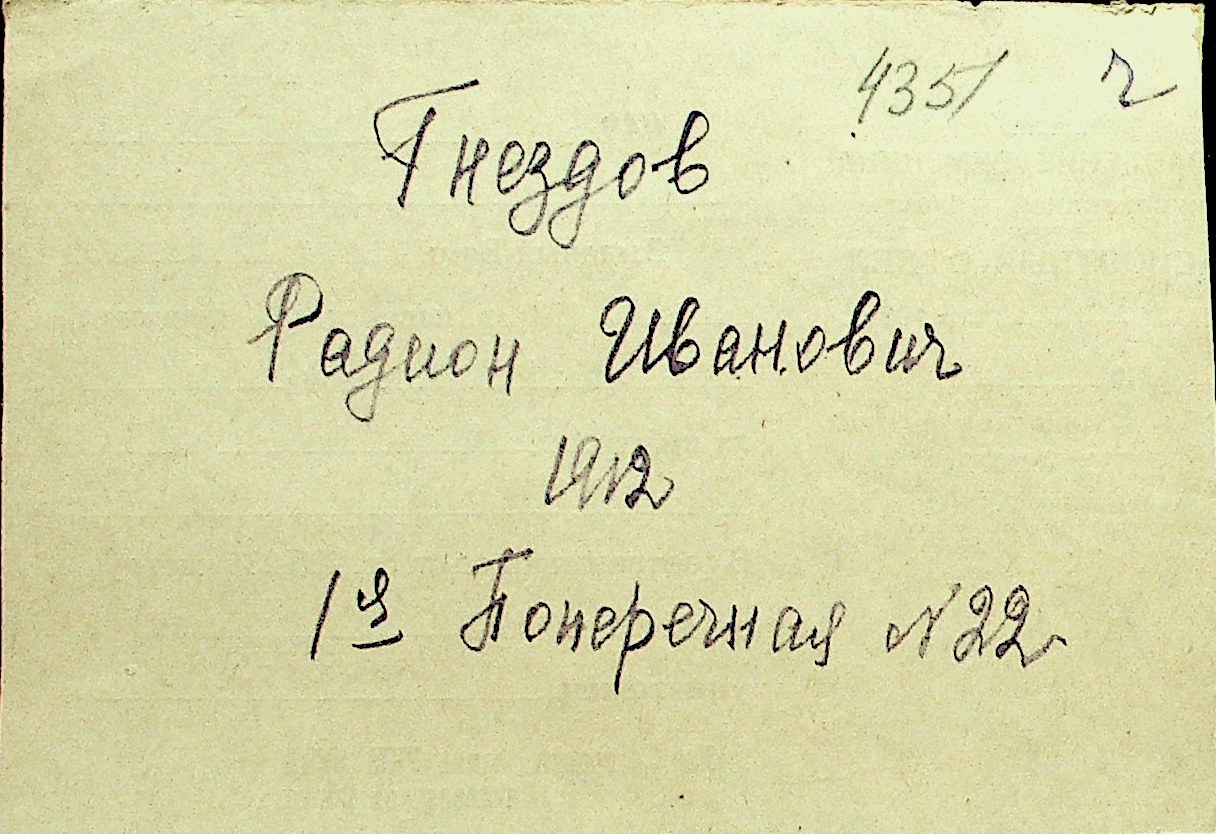 4351 ч
Гнездов
Радион Иванович
1912
1я Поперечная N22